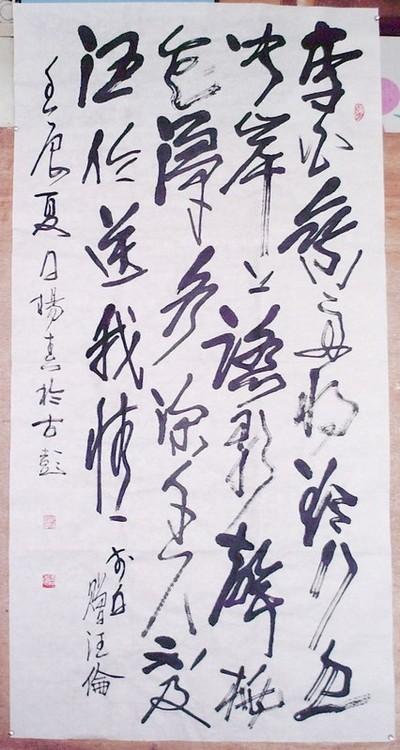 李白乘舟將欲行忽
聞岸上踏歌聲桃
花潭水深千尺不及
汪伦送我情
李白
贈汪倫
壬辰夏日楊真於古彭